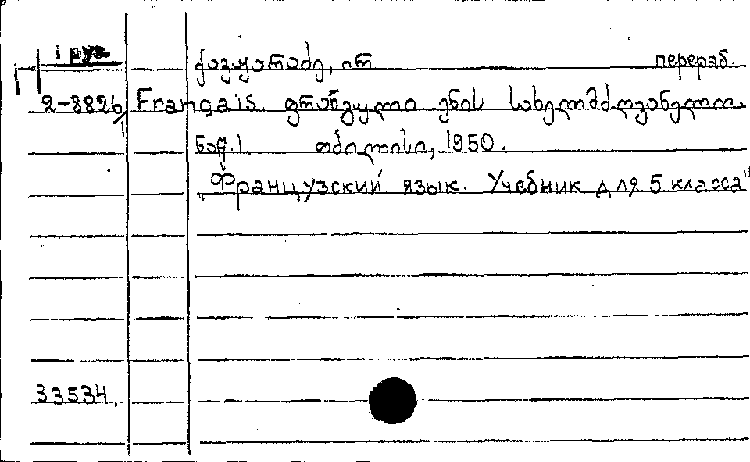 1 груз.
ქავჟარაძე, ირ перераб.
2-3826
Français. ფრანგული ენის სახელმძღვანელო.
ნაწ. 1 თბილისი, 1950.
„Французский язык. Учебник для 5 класса"
33534.